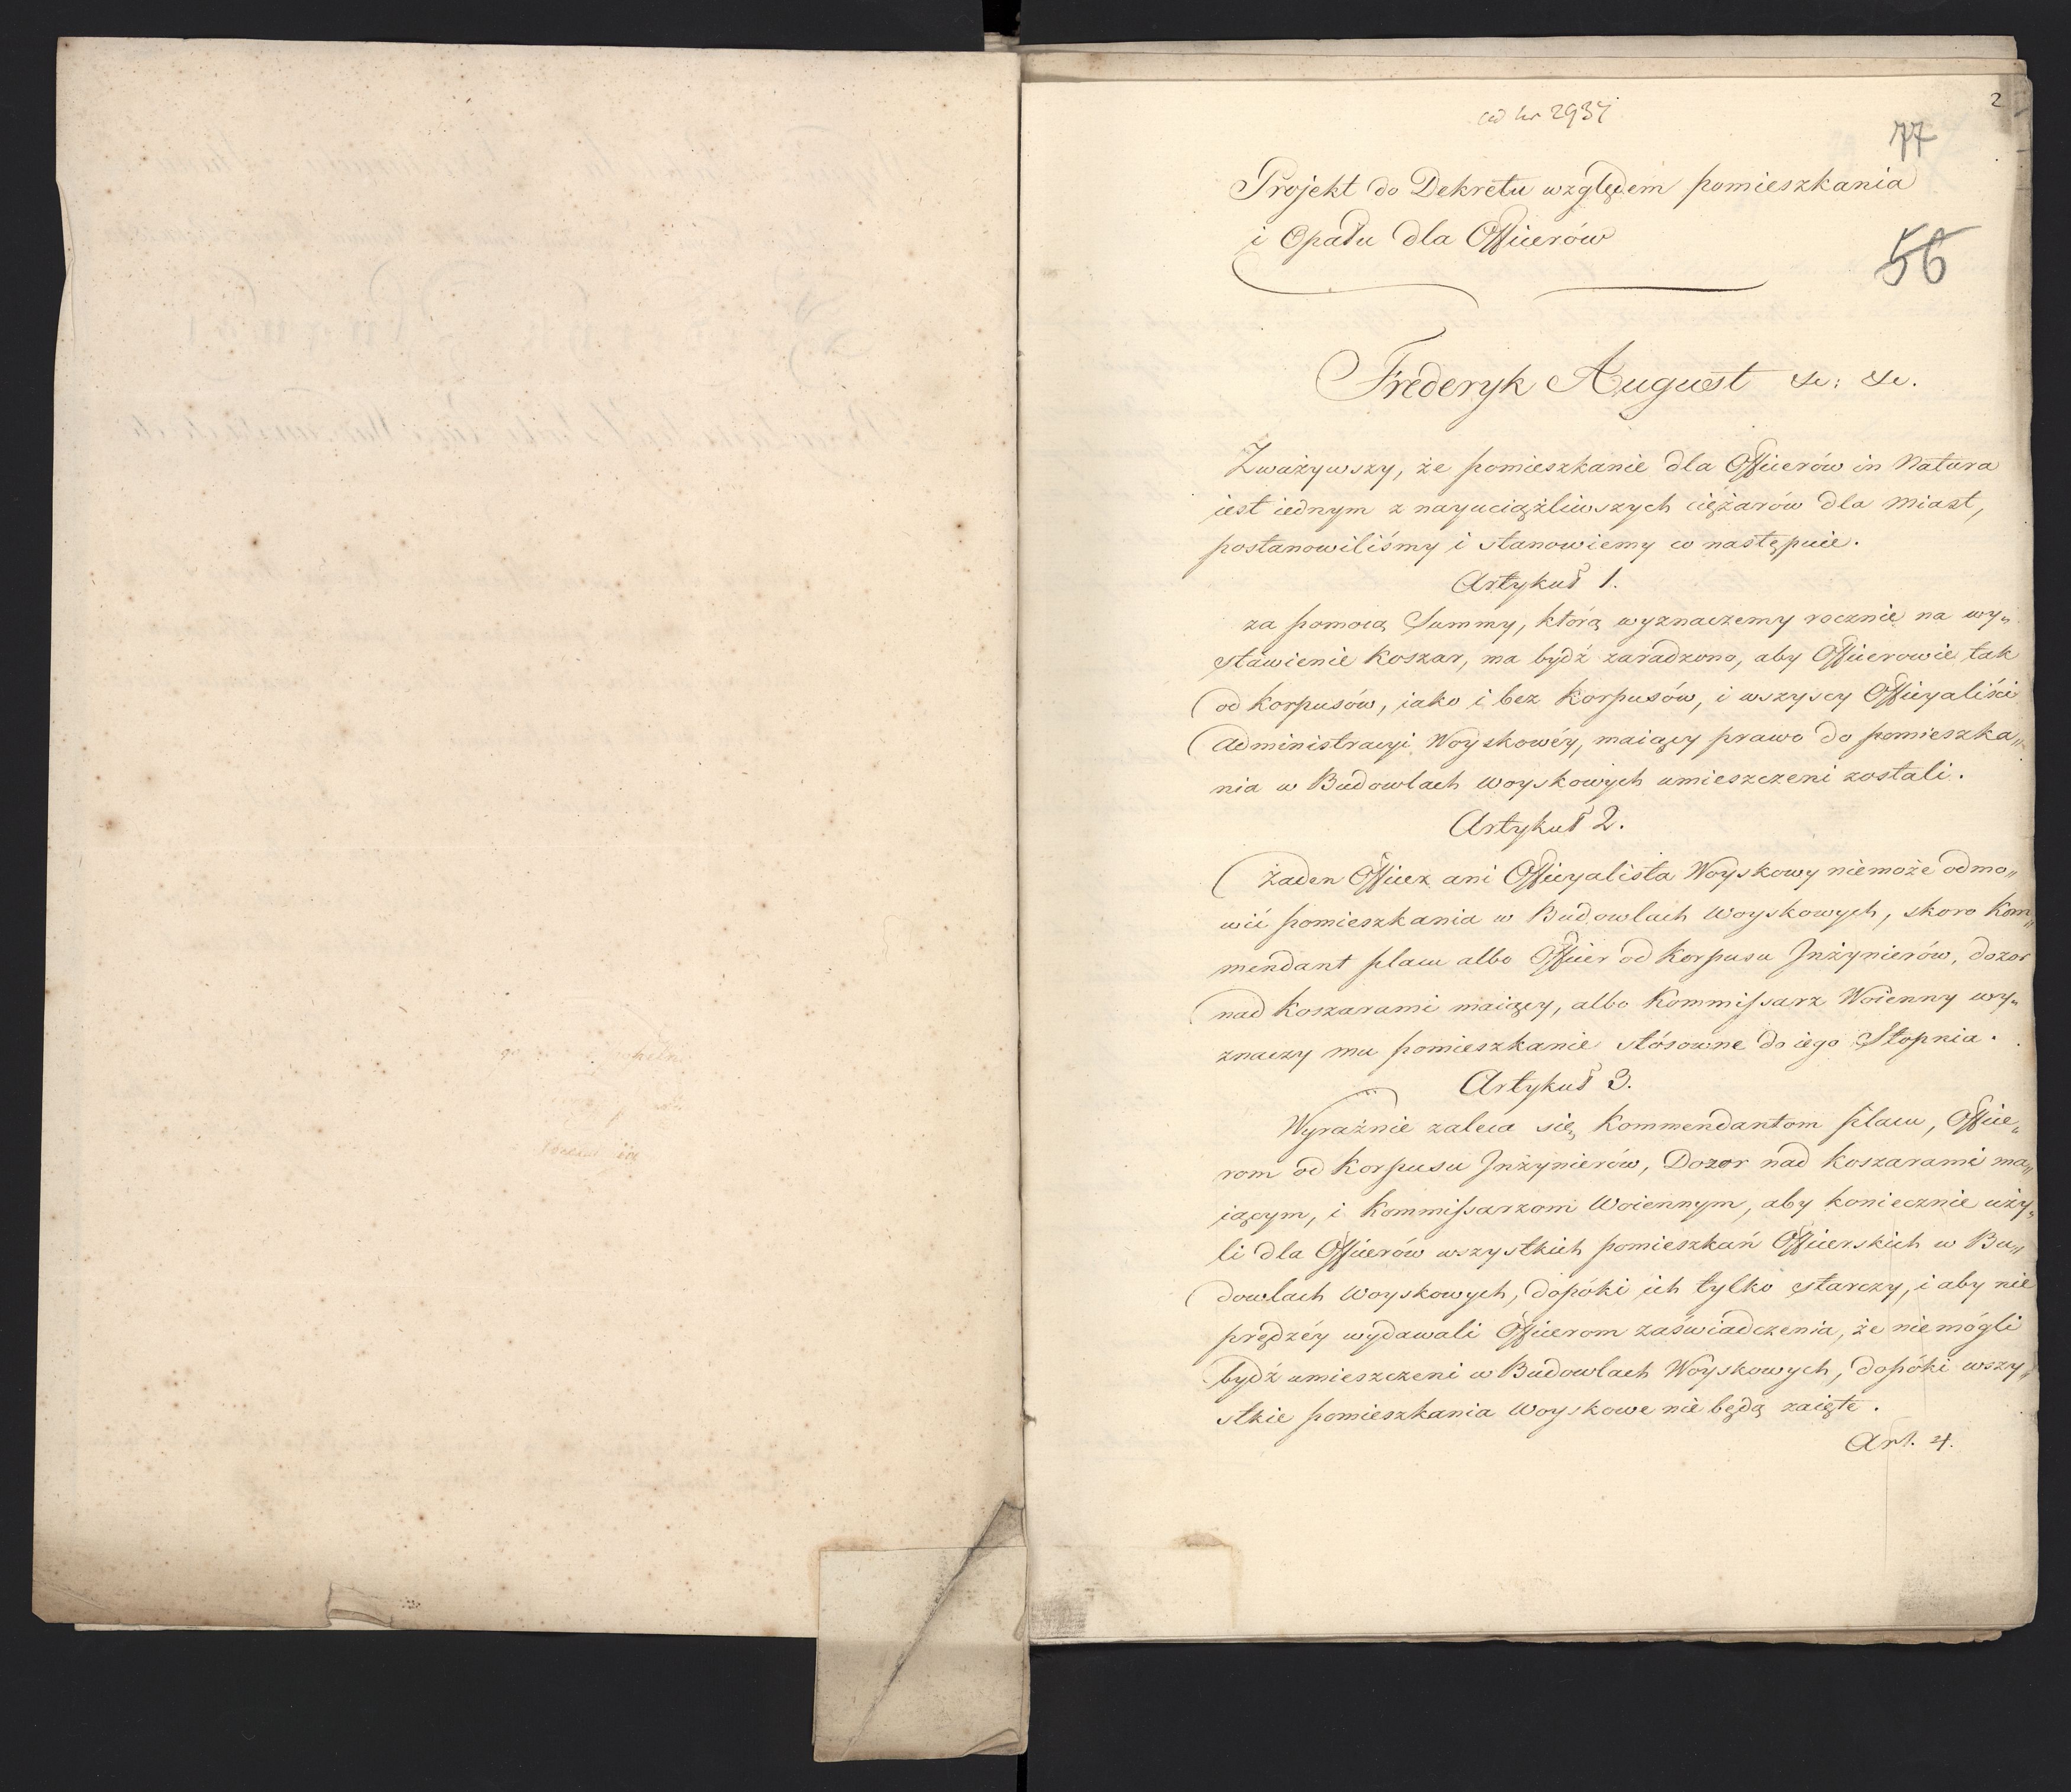 ad nr 2937
2
77
Projekt do Dekretu względem pomieszkania
i Opału dla Officerów
56
Frederyk August &c: &c.
Zważywszy, że pomieszkanie dla Officerów in Natura
iest iednym z nayuciążliwszych ciężarów dla Miast,
postanowiliśmy i stanowiemy co następuie.
Artykuł 1.
za pomocą Summy, którą wyznaczemy rocznie na wy„
stawienie Koszar, ma bydź zaradzono, aby Officerowie tak
od Korpusów, iako i bez Korpusów, i wszyscy Officyaliści
Administracyi Woyskowéy, maiący prawo do pomieszka„
nia w Budowlach Woyskowych umieszczeni zostali.
Artykuł 2.
Żaden Officer ani Officyalista Woyskowy niemoże odmo„
wić pomieszkania w Budowlach Woyskowych, skoro Kom„
mendant placu albo Officer od Korpusu Inżynierów, dozor
nad Koszarami maiący, albo Kommissarz Woienny wy„
znaczy mu pomieszkanie stósowne do iego Stopnia.
Artykuł 3.
Wyraźnie zaleca się Kommendantom placu, Office„
rom od Korpusu Inżynierów, Dozor nad Koszarami ma„
iącym, i Kommissarzom Woiennym, aby koniecznie uży„
li dla Officerów wszystkich pomieszkań Officerskich w Bu„
dowlach Woyskowych, dopóki ich tylko starczy, i aby nie
prędzéy wydawali Officerom zaświadczenia, że niemógli
bydź umieszczeni w Budowlach Woyskowych, dopóki wszy„
stkie pomieszkania Woyskowe nie będą zaięte.
Art. 4.